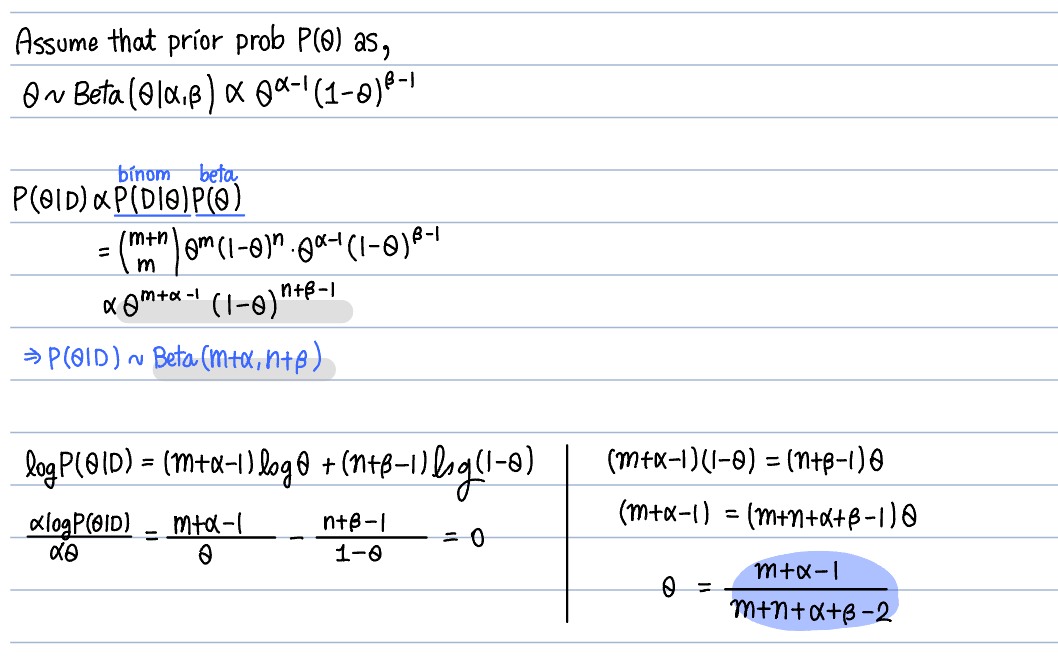 Assume that prior prob P(θ) as,
θ ~ Beta(θ|α,β) ∝ θ^{α-1} (1-θ)^{β-1}
binom beta
P(θ|D) ∝ P(D|θ)P(θ)
= \binom{m+n}{m} θ^m (1-θ)^n · θ^{α-1} (1-θ)^{β-1}
∝ θ^{m+α-1} (1-θ)^{n+β-1}
⇒ P(θ|D) ~ Beta(m+α, n+β)
log P(θ|D) = (m+α-1) log θ + (n+β-1) log (1-θ)
\frac{αlogP(θ|D)}{αθ} = \frac{m+α-1}{θ} - \frac{n+β-1}{1-θ} = 0
(m+α-1)(1-θ) = (n+β-1)θ
(m+α-1) = (m+n+α+β-1)θ
θ = \frac{m+α-1}{m+n+α+β-2}